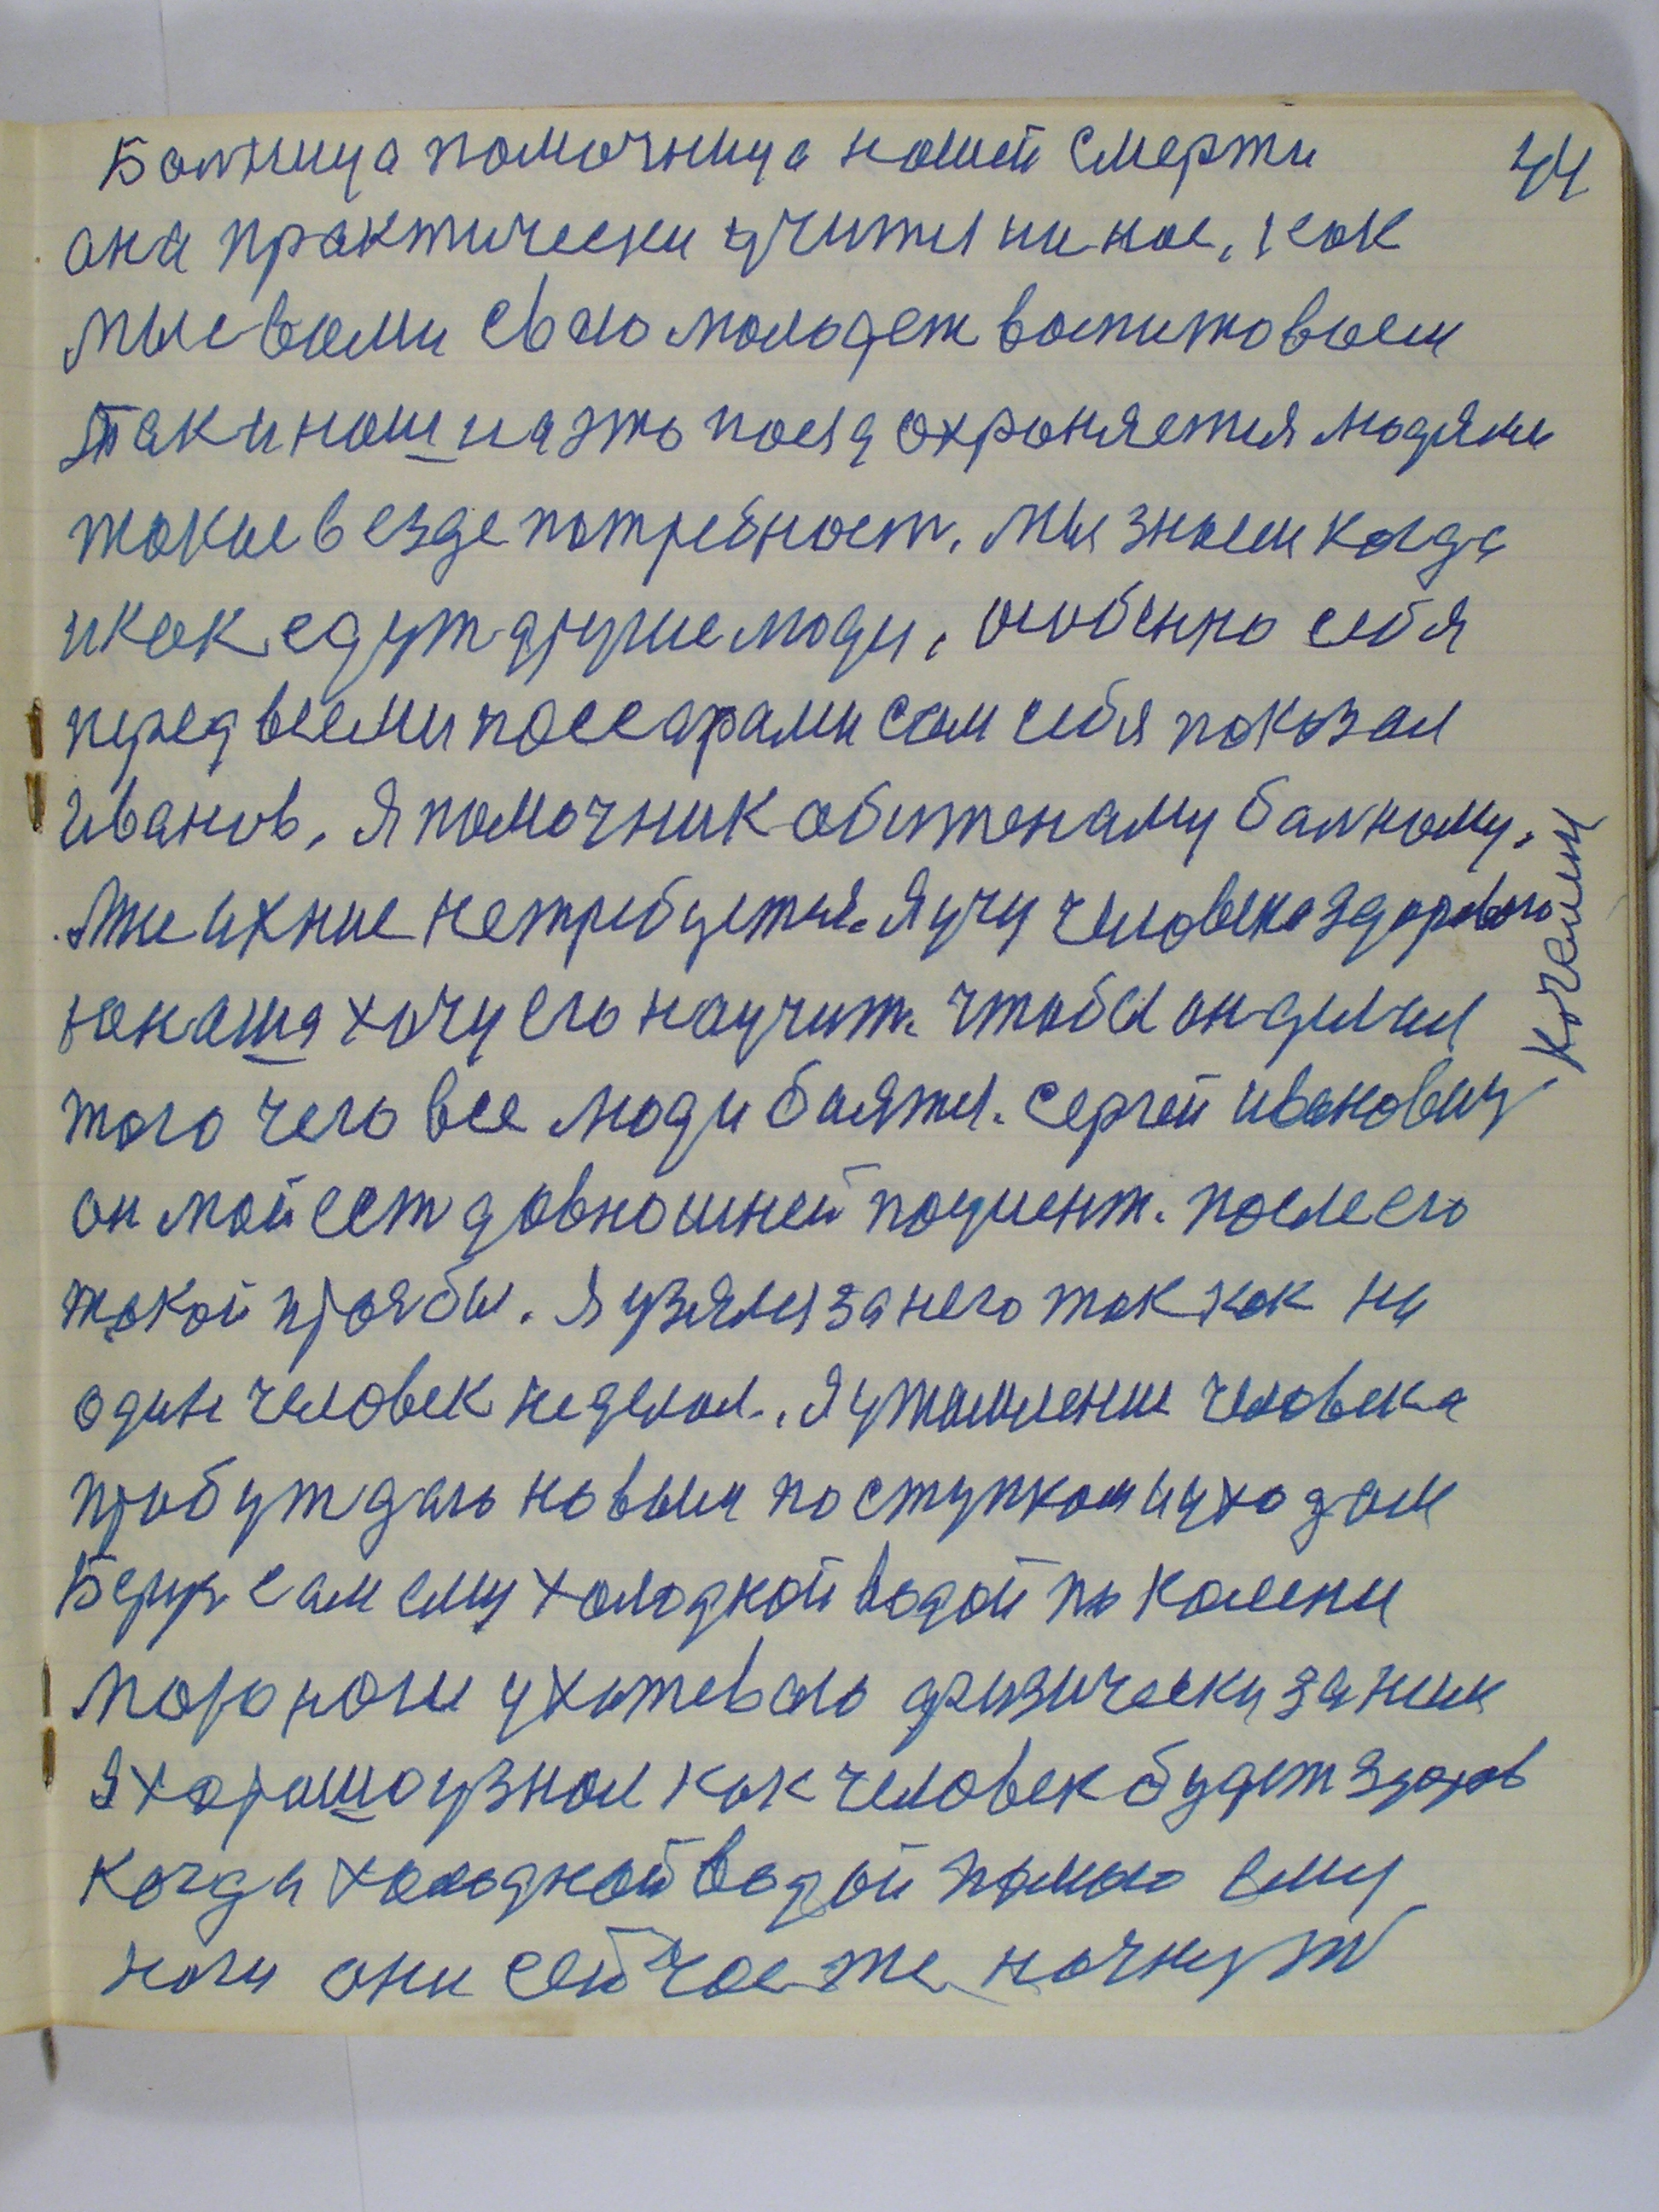 44
Болница помочница нашей смерти
она практически учится на нас, как
мы с вами свою молодеж воспитоваем
Так и наш и я эть поезд охроняется людями
такие везде потребност. Мы знаем когда
и как едут другие люди, особенно себя
перед всеми поссарами сам себя показал
Иванов. Я помочник обиженаму балному.
Мне ихние не требуется. Я учу человека здоровога
юнаша хочу его научит. чтобы он делал
того чего все люди баятся. Сергей Иванович
он мой ест давношней поциент. после его
такой прозбы. Я узялся за него так как ни
один человек не делал. Я утомление человека
пробуждаю новым поступком и уходам
Беру сам ему холодной водой по колени
мою ноги ухитеваю физически за ним
я хорашо узнал как человек будет здоров
когда холодной водой помою ему
ноги они сейчас же начнут
Кочелии